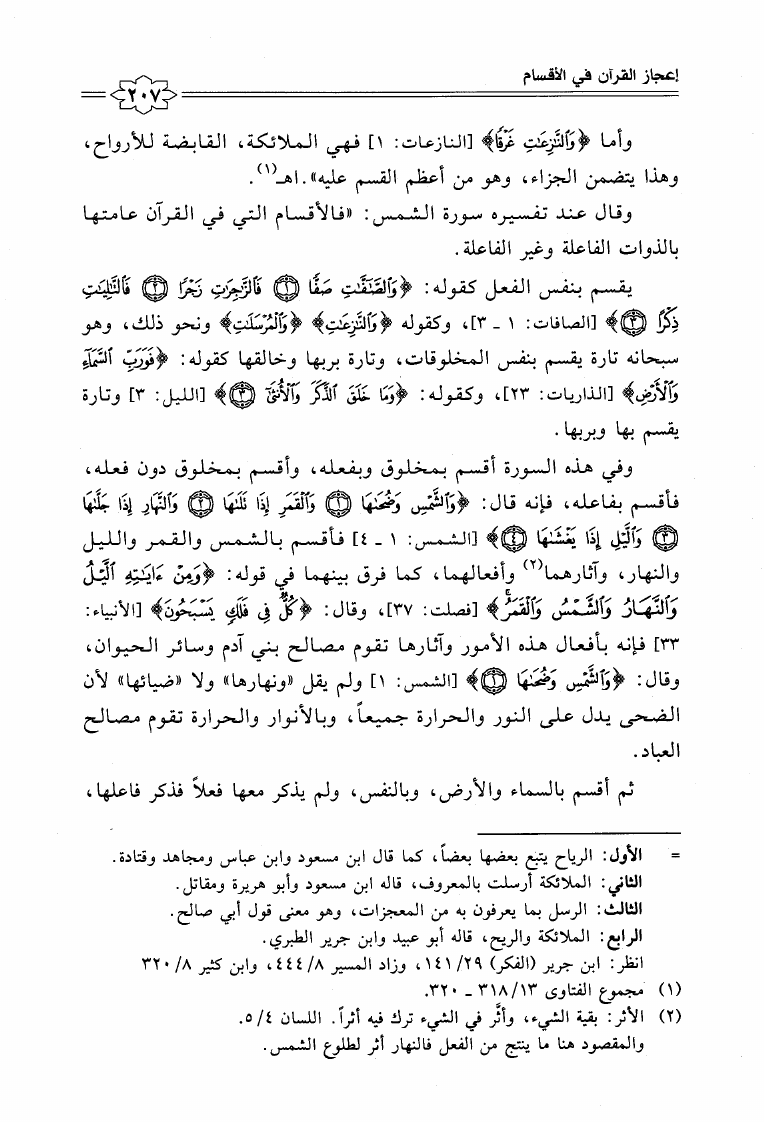 إعجاز القرآن في الأقسام
٢٠٧
وأما ﴿وَٱلنَّٰزِعَٰتِ غَرْقًا﴾ [النازعات: ١] فهي الملائكة، القابضة للأرواح،
وهذا يتضمن الجزاء، وهو من أعظم القسم عليه».اهـ(١).
وقال عند تفسيره سورة الشمس: «فالأقسام التي في القرآن عامتها
بالذوات الفاعلة وغير الفاعلة.
يقسم بنفس الفعل كقوله: ﴿وَٱلصَّٰٓفَّٰتِ صَفًّا ۝١ فَٱلزَّٰجِرَٰتِ زَجْرًا ۝٢ فَٱلتَّٰلِيَٰتِ
ذِكْرًا ۝٣﴾ [الصافات: ١ ـ ٣]، وكقوله ﴿وَٱلنَّٰزِعَٰتِ﴾ ﴿وَٱلْمُرْسَلَٰتِ﴾ ونحو ذلك، وهو
سبحانه تارة يقسم بنفس المخلوقات، وتارة بربها وخالقها كقوله: ﴿فَوَرَبِّ ٱلسَّمَآءِ
وَٱلْأَرْضِ﴾ [الذاريات: ٢٣]، وكقوله: ﴿وَمَا خَلَقَ ٱلذَّكَرَ وَٱلْأُنثَىٰٓ ۝٣﴾ [الليل: ٣] وتارة
يقسم بها وبربها.
وفي هذه السورة أقسم بمخلوق وبفعله، وأقسم بمخلوق دون فعله،
فأقسم بفاعله، فإنه قال: ﴿وَٱلشَّمْسِ وَضُحَىٰهَا ۝١ وَٱلْقَمَرِ إِذَا تَلَىٰهَا ۝٢ وَٱلنَّهَارِ إِذَا جَلَّىٰهَا
۝٣ وَٱلَّيْلِ إِذَا يَغْشَىٰهَا ۝٤﴾ [الشمس: ١ ـ ٤] فأقسم بالشمس والقمر والليل
والنهار، وآثارهما(٢) وأفعالهما، كما فرق بينهما في قوله: ﴿وَمِنْ ءَايَٰتِهِ ٱلَّيْلُ
وَٱلنَّهَارُ وَٱلشَّمْسُ وَٱلْقَمَرُ﴾ [فصلت: ٣٧]، وقال: ﴿كُلٌّ فِى فَلَكٍ يَسْبَحُونَ﴾ [الأنبياء:
٣٣] فإنه بأفعال هذه الأمور وآثارها تقوم مصالح بني آدم وسائر الحيوان،
وقال: ﴿وَٱلشَّمْسِ وَضُحَىٰهَا ۝١﴾ [الشمس: ١] ولم يقل «ونهارها» ولا «ضيائها» لأن
الضحى يدل على النور والحرارة جميعاً، وبالأنوار والحرارة تقوم مصالح
العباد.
ثم أقسم بالسماء والأرض، وبالنفس، ولم يذكر معها فعلاً فذكر فاعلها،
= الأول: الرياح يتبع بعضها بعضاً، كما قال ابن مسعود وابن عباس ومجاهد وقتادة.
الثاني: الملائكة أرسلت بالمعروف، قاله ابن مسعود وأبو هريرة ومقاتل.
الثالث: الرسل بما يعرفون به من المعجزات، وهو معنى قول أبي صالح.
الرابع: الملائكة والريح، قاله أبو عبيد وابن جرير الطبري.
انظر: ابن جرير (الفكر) ١٤١/٢٩، وزاد المسير ٤٤٤/٨، وابن كثير ٣٢٠/٨
(١) مجموع الفتاوى ٣١٨/١٣ ـ ٣٢٠.
(٢) الأثر: بقية الشيء، وأثَّر في الشيء ترك فيه أثراً. اللسان ٥/٤.
والمقصود هنا ما ينتج من الفعل فالنهار أثر لطلوع الشمس.